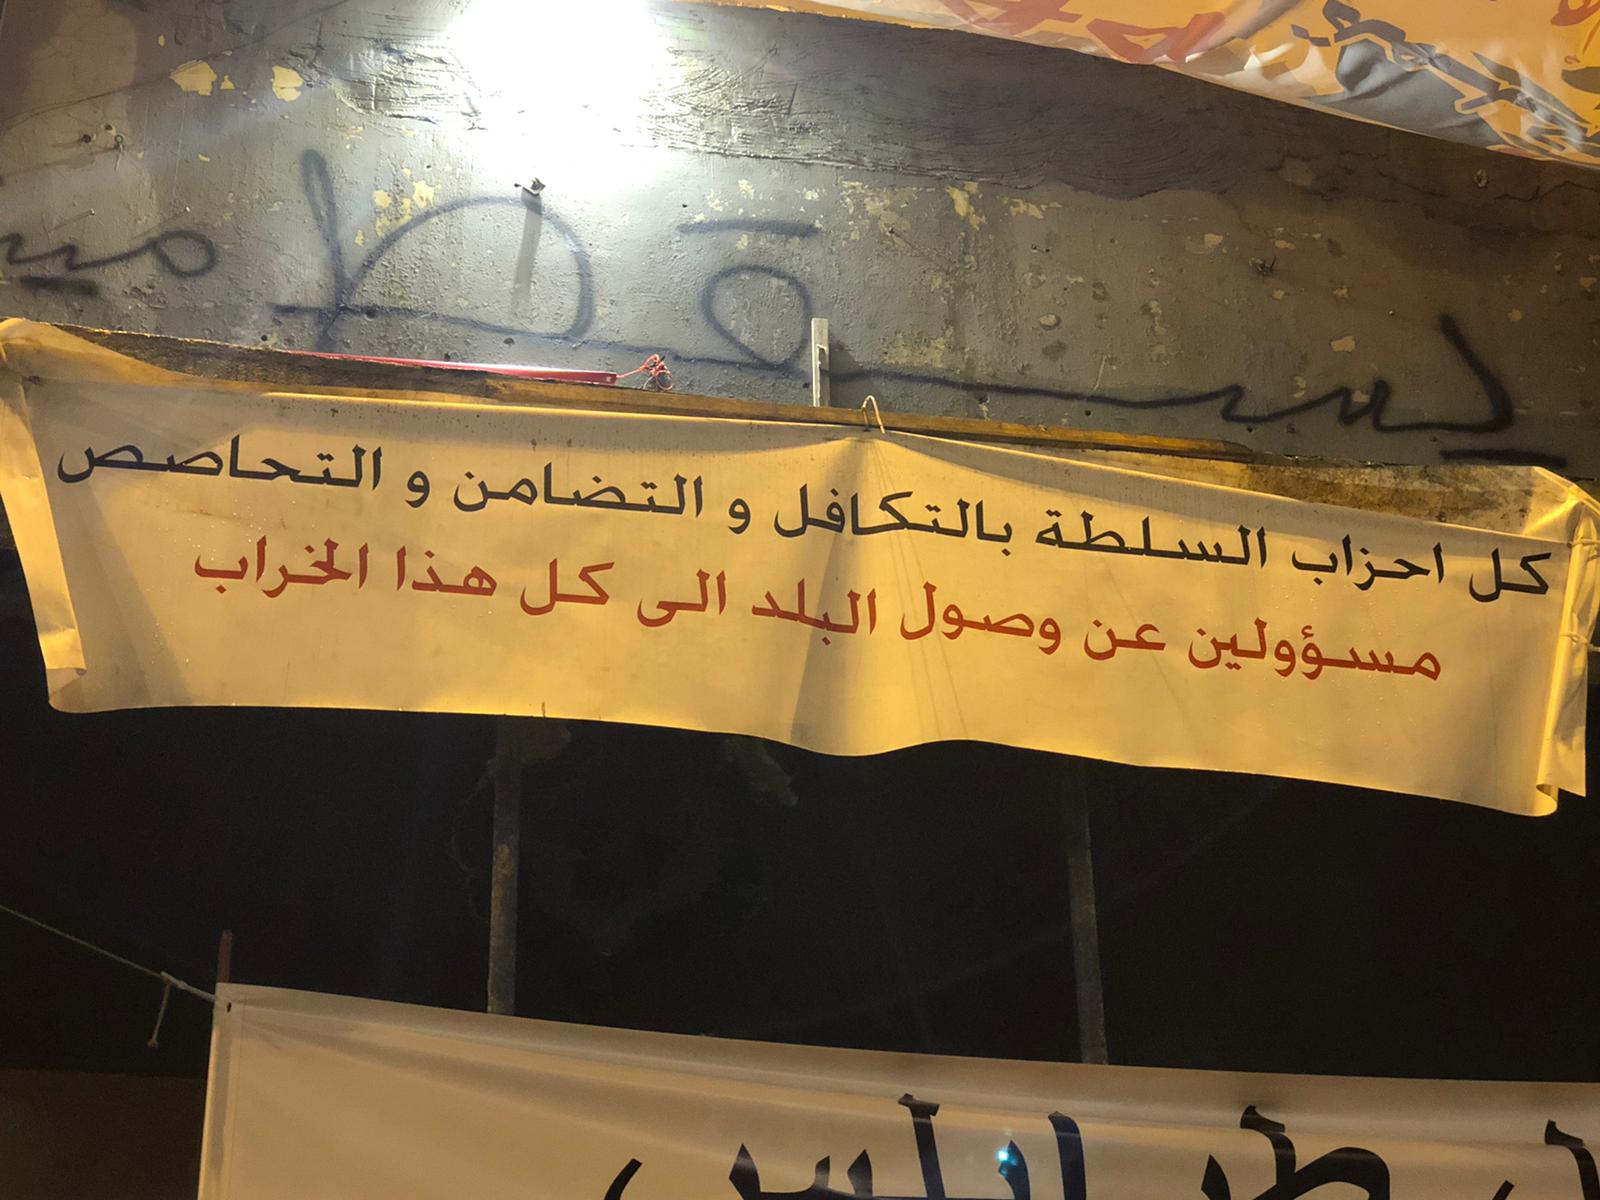 يسقط
كل احزاب السلطة بالتكافل و التضامن و التحاصص
مسؤولين عن وصول البلد الى كل هذا الخراب
طرابلس